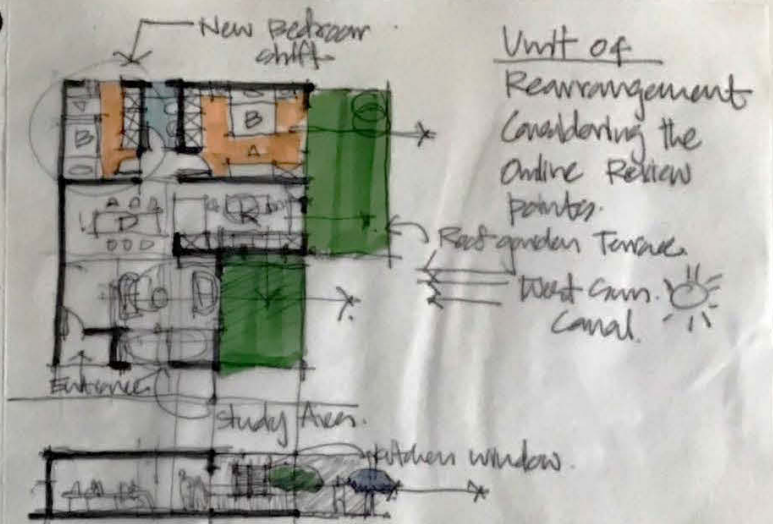 New Bedroom
shift
Unit of
Rearrangement
Considering the
Online Review
points.
B
B
D
K
Roof garden Terrace.
West Sun.
Canal.
Entrance
Study Area.
Kitchen window.